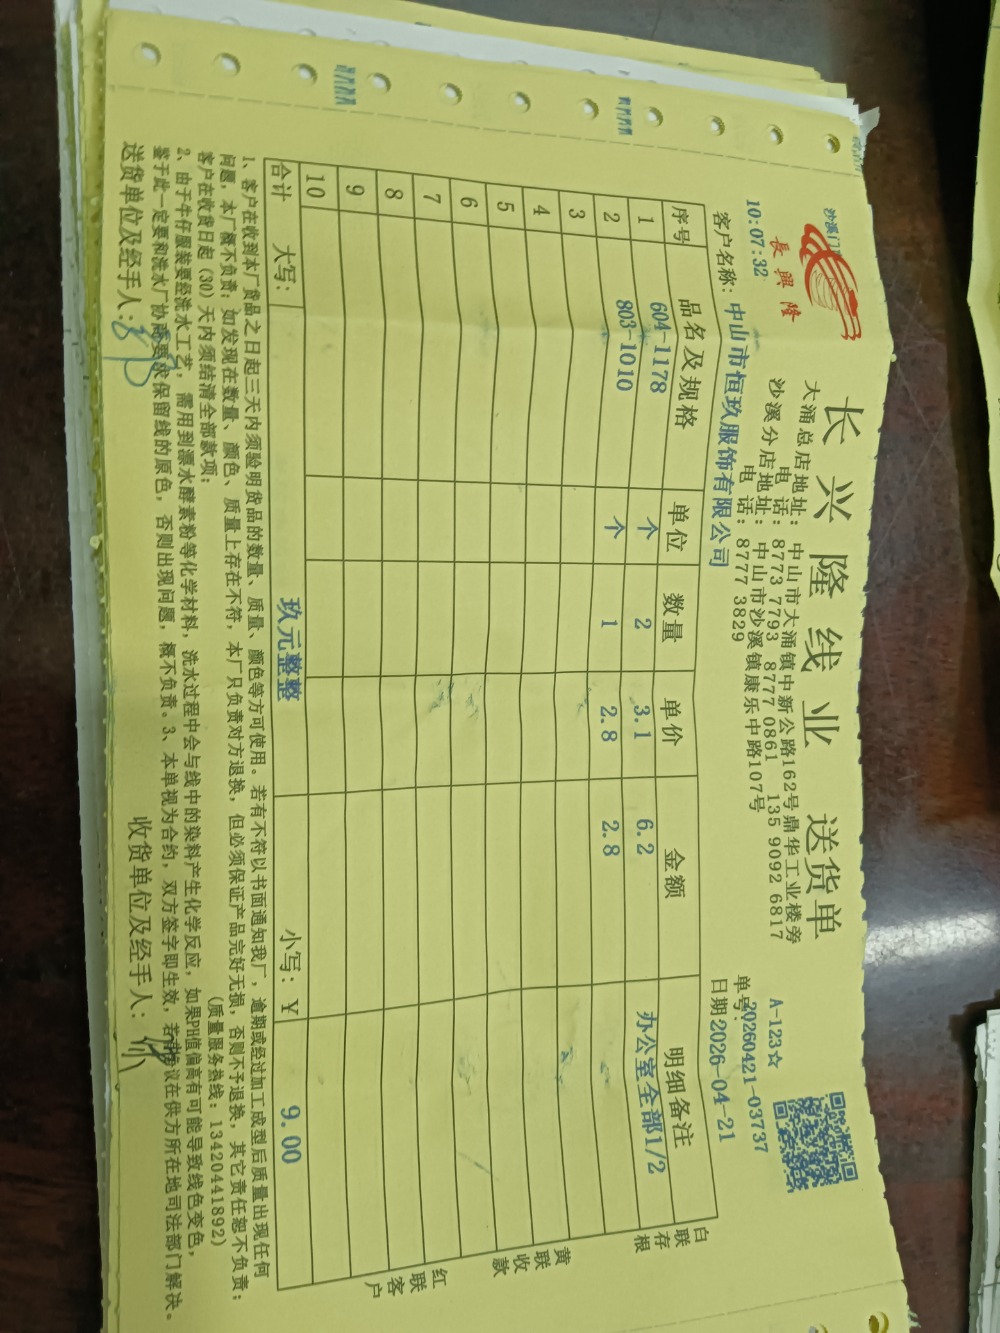 沙溪门
長興隆
长兴隆线业 送货单
大涌总店地址:中山市大涌镇中新公路162号鼎华工业楼旁
电 话:8773 7793 8777 0861 135 9092 6817
沙溪分店地址:中山市沙溪镇康乐中路107号
电 话:8777 3829
A-123☆
单号:20260421-03737
10:07:32
客户名称:中山市恒玖服饰有限公司
日期:2026-04-21
序号 品名及规格 单位 数量 单价 金额 明细备注
1 604-1178 个 2 3.1 6.2 办公室全部1/2
2 803-1010 个 1 2.8 2.8
3
4
5
6
7
8
9
10
合计 大写: 玖元整整 小写:¥ 9.00
白联存根
黄联收款
红联客户
1、客户在收到本厂货品之日起三天内须验明货品的数量、质量、颜色等方可使用。若有不符以书面通知我厂,逾期或经过加工成型后质量出现任何
问题,本厂概不负责;如发现在数量、颜色、质量上存在不符,本厂只负责对方退换,但必须保证产品完好无损,否则不予退换,其它责任恕不负责;
客户在收货日起(30)天内须结清全部款项; (质量服务热线:13420441892)
2、由于牛仔服装要经洗水工艺,需用到漂水酵素粉等化学材料,洗水过程中会与线中的染料产生化学反应,如果PH值偏高有可能导致线色变色,
鉴于此一定要和洗水厂协商要求保留线的原色,否则出现问题,概不负责。3、本单视为合约,双方签字即生效,若有争议在供方所在地司法部门解决。
送货单位及经手人: 收货单位及经手人: